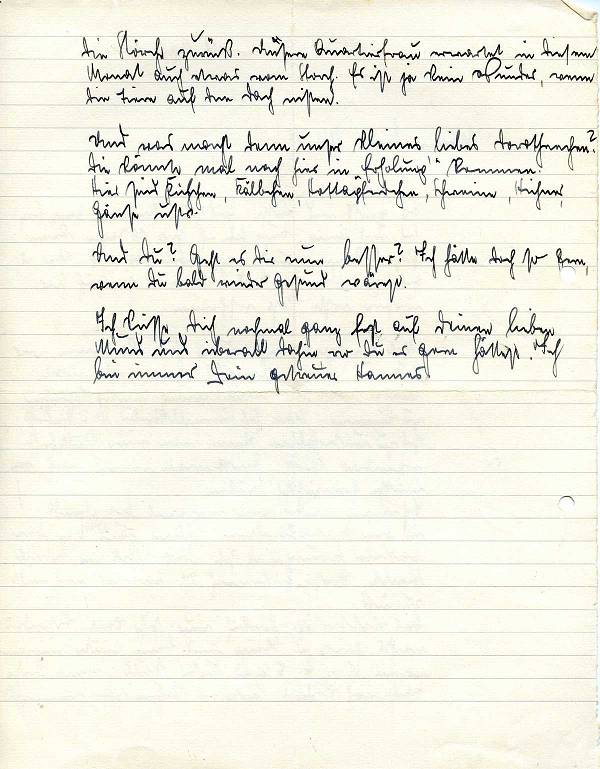 die Störche zurück. Unsere Quartierfrau erwartet in diesem
Monat auch etwas vom Storch. Es ist ja kein Wunder, wenn
die Tiere auf dem Dach nisten.
Und was macht denn unser kleines liebes Dorotheechen?
Die könnte mal nach hier in "Erholung" kommen.
Hier sind Kühchen, Kälbchen, Hottapferdchen, Schweine, Hühner,
Gänse usw.
Und Du? Geht es Dir nun besser? Ich hätte doch so gern,
wenn Du bald wieder gesund wärest.
Ich küsse Dich nochmal ganz fest auf Deinen lieben
Mund und überall dahin wo Du es gern hättest. Ich
bin immer Dein getreuer Hannes